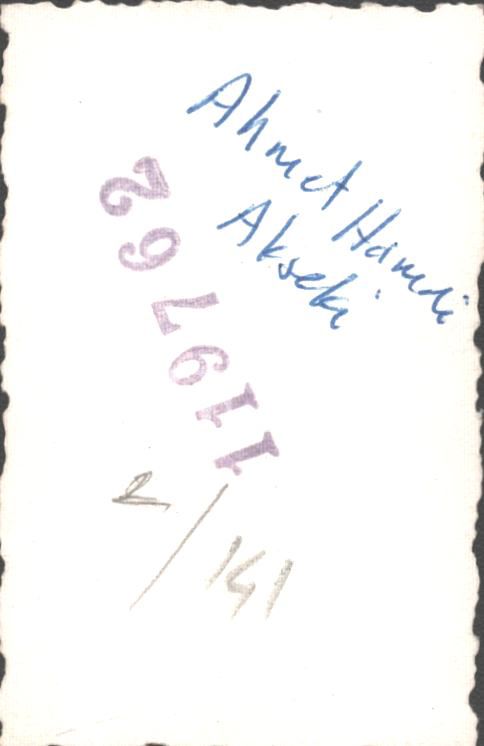 Ahmet Hamdi
Akseki
119762
2/141